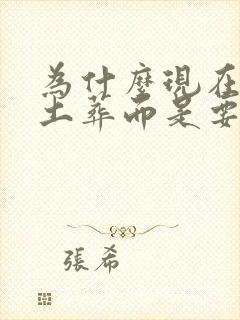 為什麼現在
土葬而是要
張希